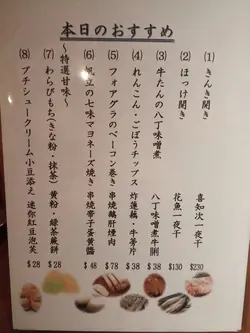 本日のおすすめ
(1) きんき開き 喜知次一夜干 $230
(2) ほっけ開き 花魚一夜干 $130
(3) 牛たんの八丁味噌煮 八丁味噌煮牛脷 $38
(4) れんこん・ごぼうチップス 炸蓮藕・牛蒡片 $38
(5) フォアグラのベーコン巻き 串燒鵝肝煙肉 $78
(6) 帆立の七味マヨネーズ焼き 串燒帶子蛋黃醬 $48
～特選甘味～
(7) わらびもち(きな粉・抹茶) 黄粉・緑茶蕨餅 $28
(8) プチシュークリーム小豆添え 迷你紅豆泡芙 $28